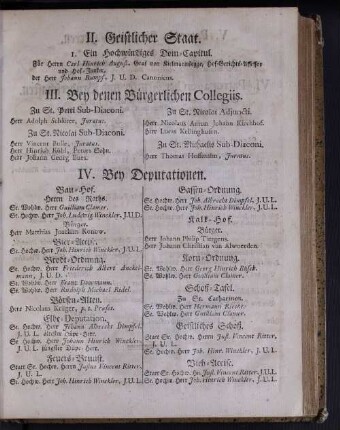 II. Geistlicher Staat.
1. Ein Hochwürdiges Dom-Capitul.
Für Herrn Carl Hinrich August, Graf von Kielmansegge, Hof-Gerichts-Assessor
und Hof-Junker,
der Herr Johann Rumpf, J. U. D. Canonicus.
III. Bey denen Bürgerlichen Collegiis.
Zu St. Petri Sub-Diaconi.
Herr Adolph Schlüter, Juratus.
Zu St. Nicolai Sub-Diaconi.
Herr Vincent Rulle, Juratus.
Herr Hinrich Röhl, Peters Sohn.
Herr Johann Georg Büsch.
Zu St. Nicolai Adjuncti.
Herr Nicolaus Anton Johann Kirchhof.
Herr Lucas Kellinghusen.
Zu St. Michaelis Sub-Diaconi.
Herr Thomas Hoffmann, Juratus.
IV. Bey Deputationen.
Bau-Hof.
Herren des Raths.
Sr. Wohlw. Herr Guilliam Clamer.
Sr. Hochw. Herr Joh. Ludewig Winckler, J.U.D.
Bürger.
Herr Matthias Joachim
Bier-Accise.
Sr. Hochw. Herr Joh. Hinrich Winckler, J.U.L.
Brodt-Ordnung.
Sr. Hochw. Herr Friederich Albert
mann, J. U. D.
Sr. Wohlw. Herr Franz Doormann.
Sr. Wohlw. Herr Rudolph Michael Rädel.
Börsen-Alten.
Herr Nicolaus Krüger, p. t. Præses.
Elbe-Deputation.
Sr. Hochw. Herr Johann Albrecht Dimpfel,
J. U. L. ältester Düpe-Herr.
Sr. Hochw. Herr Johann Hinrich Winckler,
J. U. L. jüngster Düpe-Herr.
Feuers-Brunst.
Statt Sr. Hochw. Herrn Justus Vincent Ritter,
J. U. L.
Sr. Hochw. Herr Joh. Hinrich Winckler, J.U.L.
Gassen-Ordnung.
Sr. Hochw. Herr Joh. Albrecht Dimpfel, J.U.L.
Sr. Hochw. Herr Joh. Hinrich Winckler, J.U.L.
Kalk-Hof.
Bürger.
Herr Johann Philip Tietgens.
Herr Johann Christian van Alwoerden.
Korn-Ordnung.
Sr. Wohlw. Herr Georg Hinrich
Sr. Wohlw. Herr Guilliam Clamer.
Schoß-Tafel.
Zu St. Catharinen.
Sr. Wohlw. Herr Hermann
Sr. Wohlw. Herr Guilliam Clamer.
Geistliches Schoß.
Statt Sr. Hochw. Herrn Just. Vincent Ritter,
J. U. L.
Sr. Hochw. Herr Joh. Hinr. Winckler, J.U.L.
Vieh-Accise.
Statt Sr. Hochw. Hn. Just. Vincent Ritter, J.U.L.
Sr. Hochw. Herr Joh. Hinrich Winckler, J.U.L.